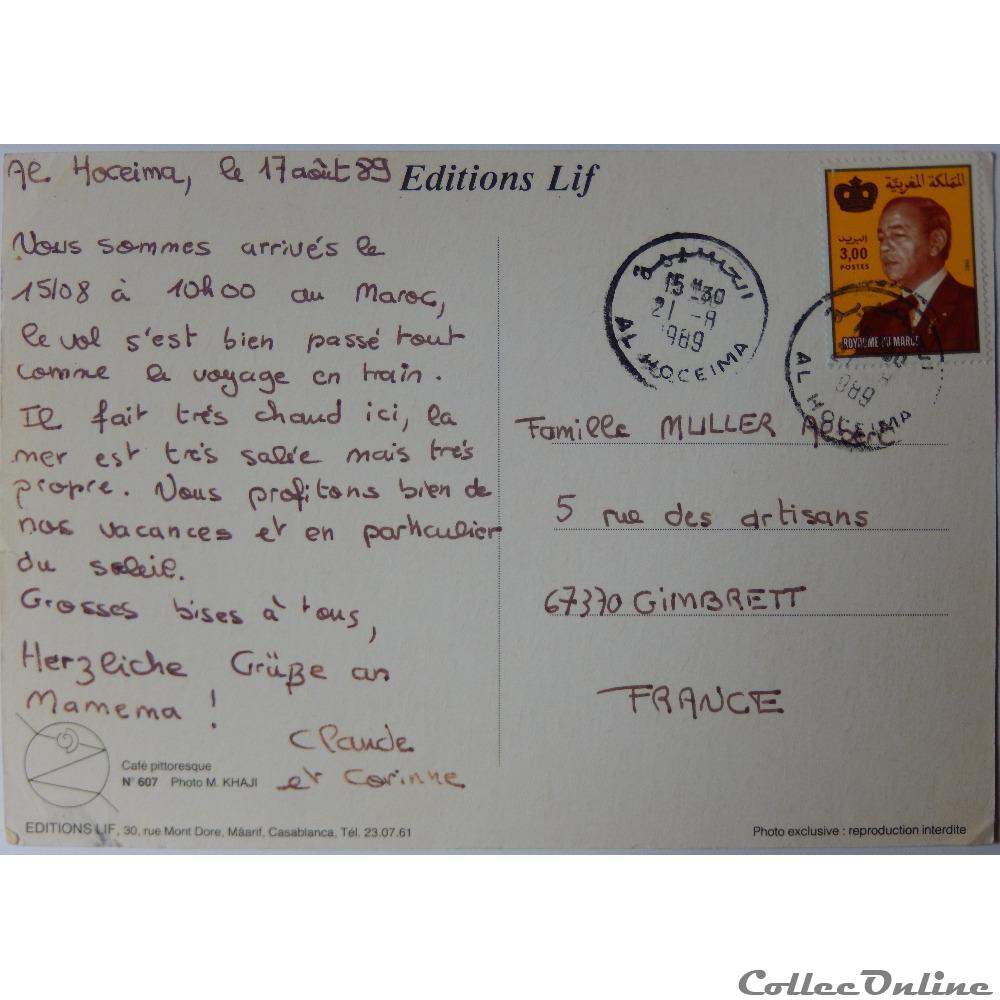 Al Hoceima, le 17 août 89
Editions Lif
Nous sommes arrivés le
15/08 à 10h00 au Maroc,
le vol s'est bien passé tout
comme le voyage en train.
Il fait très chaud ici, la
mer est très salée mais très
propre. Nous profitons bien de
nos vacances et en particulier
du soleil.
Grosses bises à tous,
Herzliche Grüße an
Mamema !
Claude
et Corinne
Café pittoresque
N° 607 Photo M. KHAJI
EDITIONS LIF, 30, rue Mont Dore, Mâarif, Casablanca, Tél. 23.07.61
المملكة المغربية
البريد
3,00
POSTES
ROYAUME DU MAROC
الحسيمة
15 H30
21 -8
1989
AL HOCEIMA
989
AL HOCEIMA
Famille MULLER Albert
5 rue des artisans
67370 GIMBRETT
FRANCE
Photo exclusive : reproduction interdite
CollecOnline